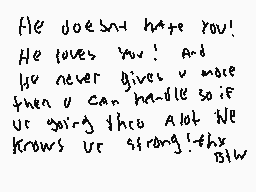 He doesnt hate You!
He loves You! And
He never gives u more
then u can handle so if
ur going thro Alot He
Knows ur strong! thx
Btw